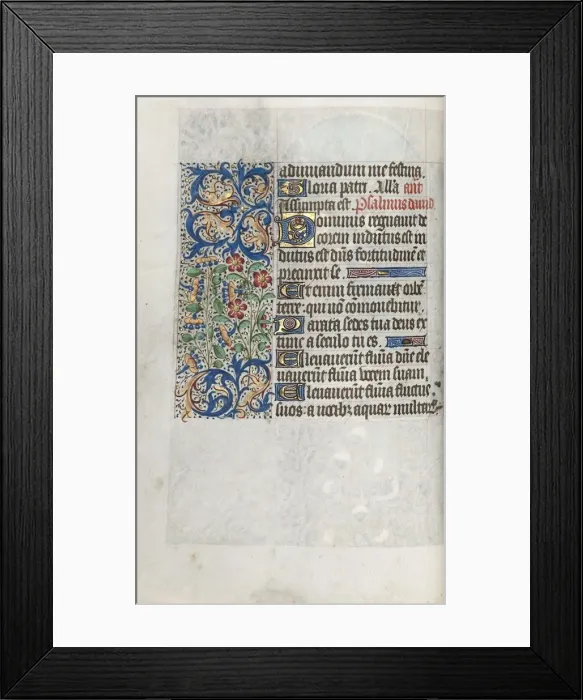 adiuuandum me festina.
Gloria patri. Alla ant
Assumpta est. Psalmus dauid.
Dominus regnauit de
corem indutus est in
dutus est dn̄s fortitudinē et
precinxit se.
Et enim firmauit orbē
terre: qui nō cōmouebitur.
Parata sedes tua deus ex
tunc a seculo tu es.
Eleuauerūt flumīa dn̄e ele
uauerūt flumīa vocem suam.
Eleuauerūt flumīa fluctus
suos: a vocibꝫ aquarꝫ multarꝫ.